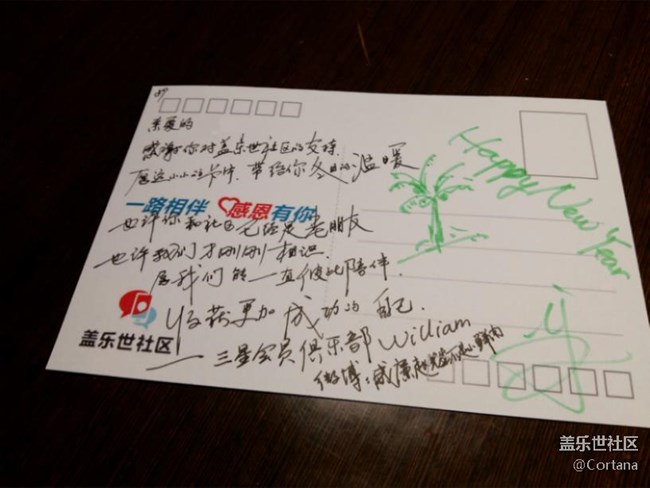 亲爱的
感谢你对盖乐世社区的支持.
愿这小小的卡片,带给你冬日的温暖
一路相伴 感恩有你!
也许你和社区已经是老朋友
也许我们才刚刚相识.
愿我们能一直彼此陪伴.
收获更加成功的自己.
——三星会员俱乐部 William
微博:威廉
盖乐世社区
Happy New Year
盖乐世社区
@Cortana